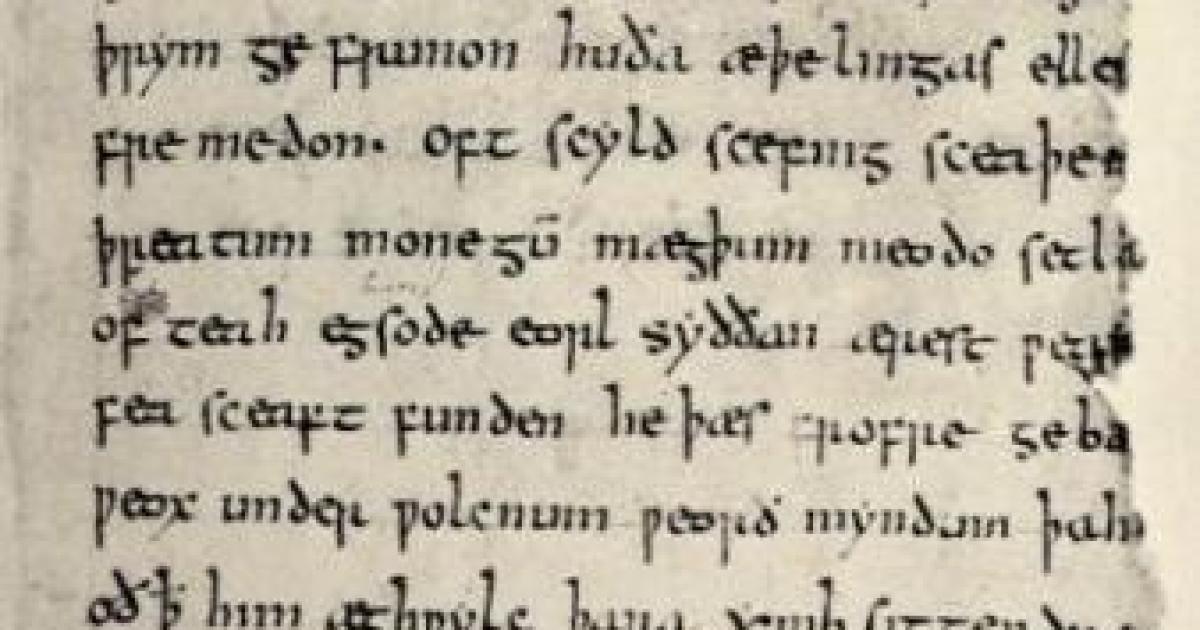 þrym ge frunon huða æþelingas elle
fremedon. oft scyld scefing sceaþen
þreatum monegū mægþum meodo setla
of teah egsode eorl syððan ærest
fea sceaft funden he þæs frofre geba
weox under wolcnum weorð myndum þah
oð ꝥ him æghwylc þara ymb sittendra